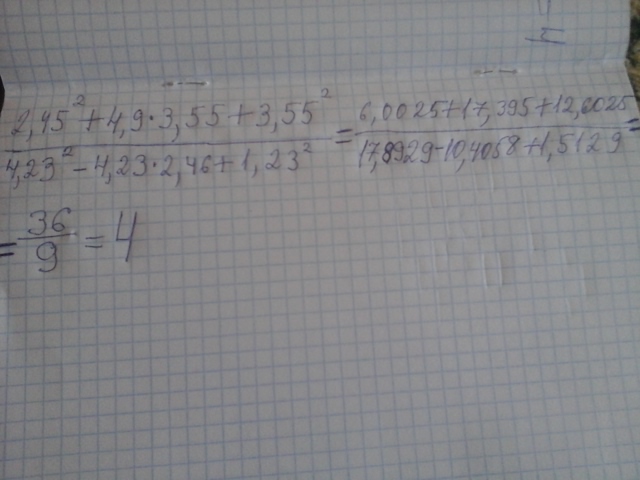 (2,45² + 4,9·3,55 + 3,55²)/(4,23² − 4,23·2,46 + 1,23²) = (6,0025+17,395+12,6025)/(17,8929-10,4058+1,5129) =
= 36/9 = 4